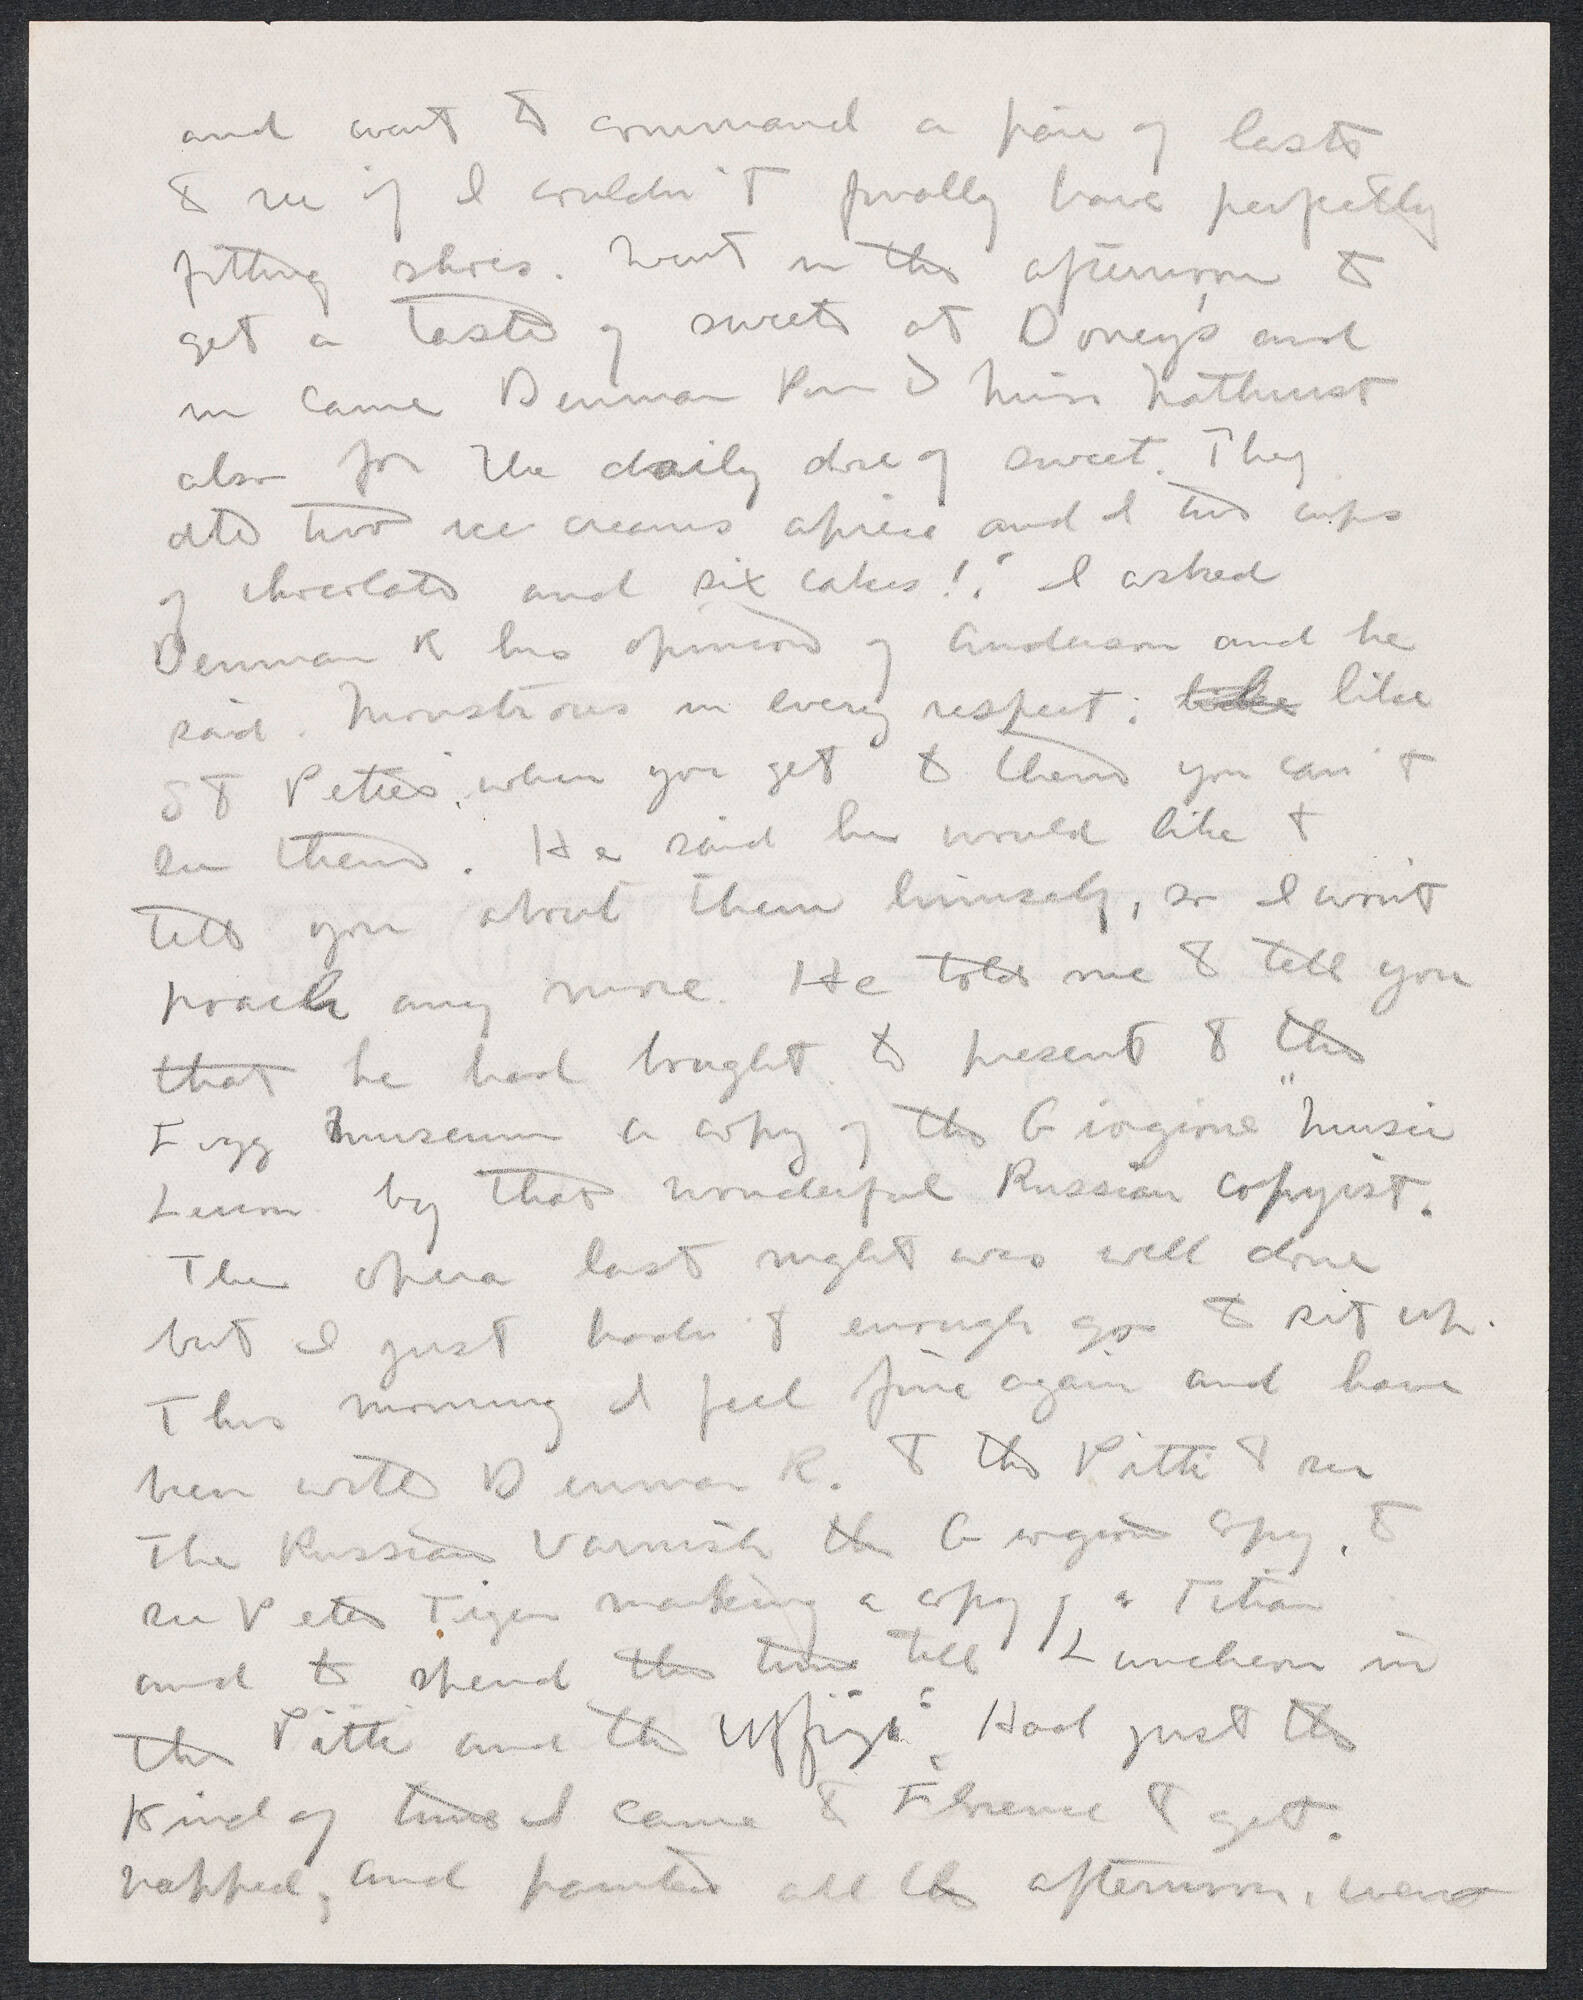 and went to command a pair of lasts
to see if I couldn't finally have perfectly
fitting shoes. Went in the afternoon to
get a taste of sweets at Doney's and
in came Denman Ross & Miss Bathurst
also for the daily dose of sweet. They
ate two ice creams apiece and I two cups
of chocolate and six cakes!! I asked
Denman R his opinion of Anderson and he
said. Monstrous in every respect; like
St Peters, when you get to them you can't
see them. He said he would like to
tell you about them himself, so I won't
poach any more. He told me to tell you
that he had bought to present to the
Fogg Museum a copy of the Giorgione "Music
Lesson by that wonderful Russian copyist.
The opera last night was well done
but I just hadn't enough go to sit up.
This morning I feel fine again and have
been with Denman R. to the Pitti to see
the Russian varnish the Giorgione copy, to
see Pete Tiger making a copy of a Titian
and to spend the time till Luncheon in
the Pitti and the Uffizi. Had just the
kind of time I came to Florence to get.
Napped, and painted all the afternoon, went